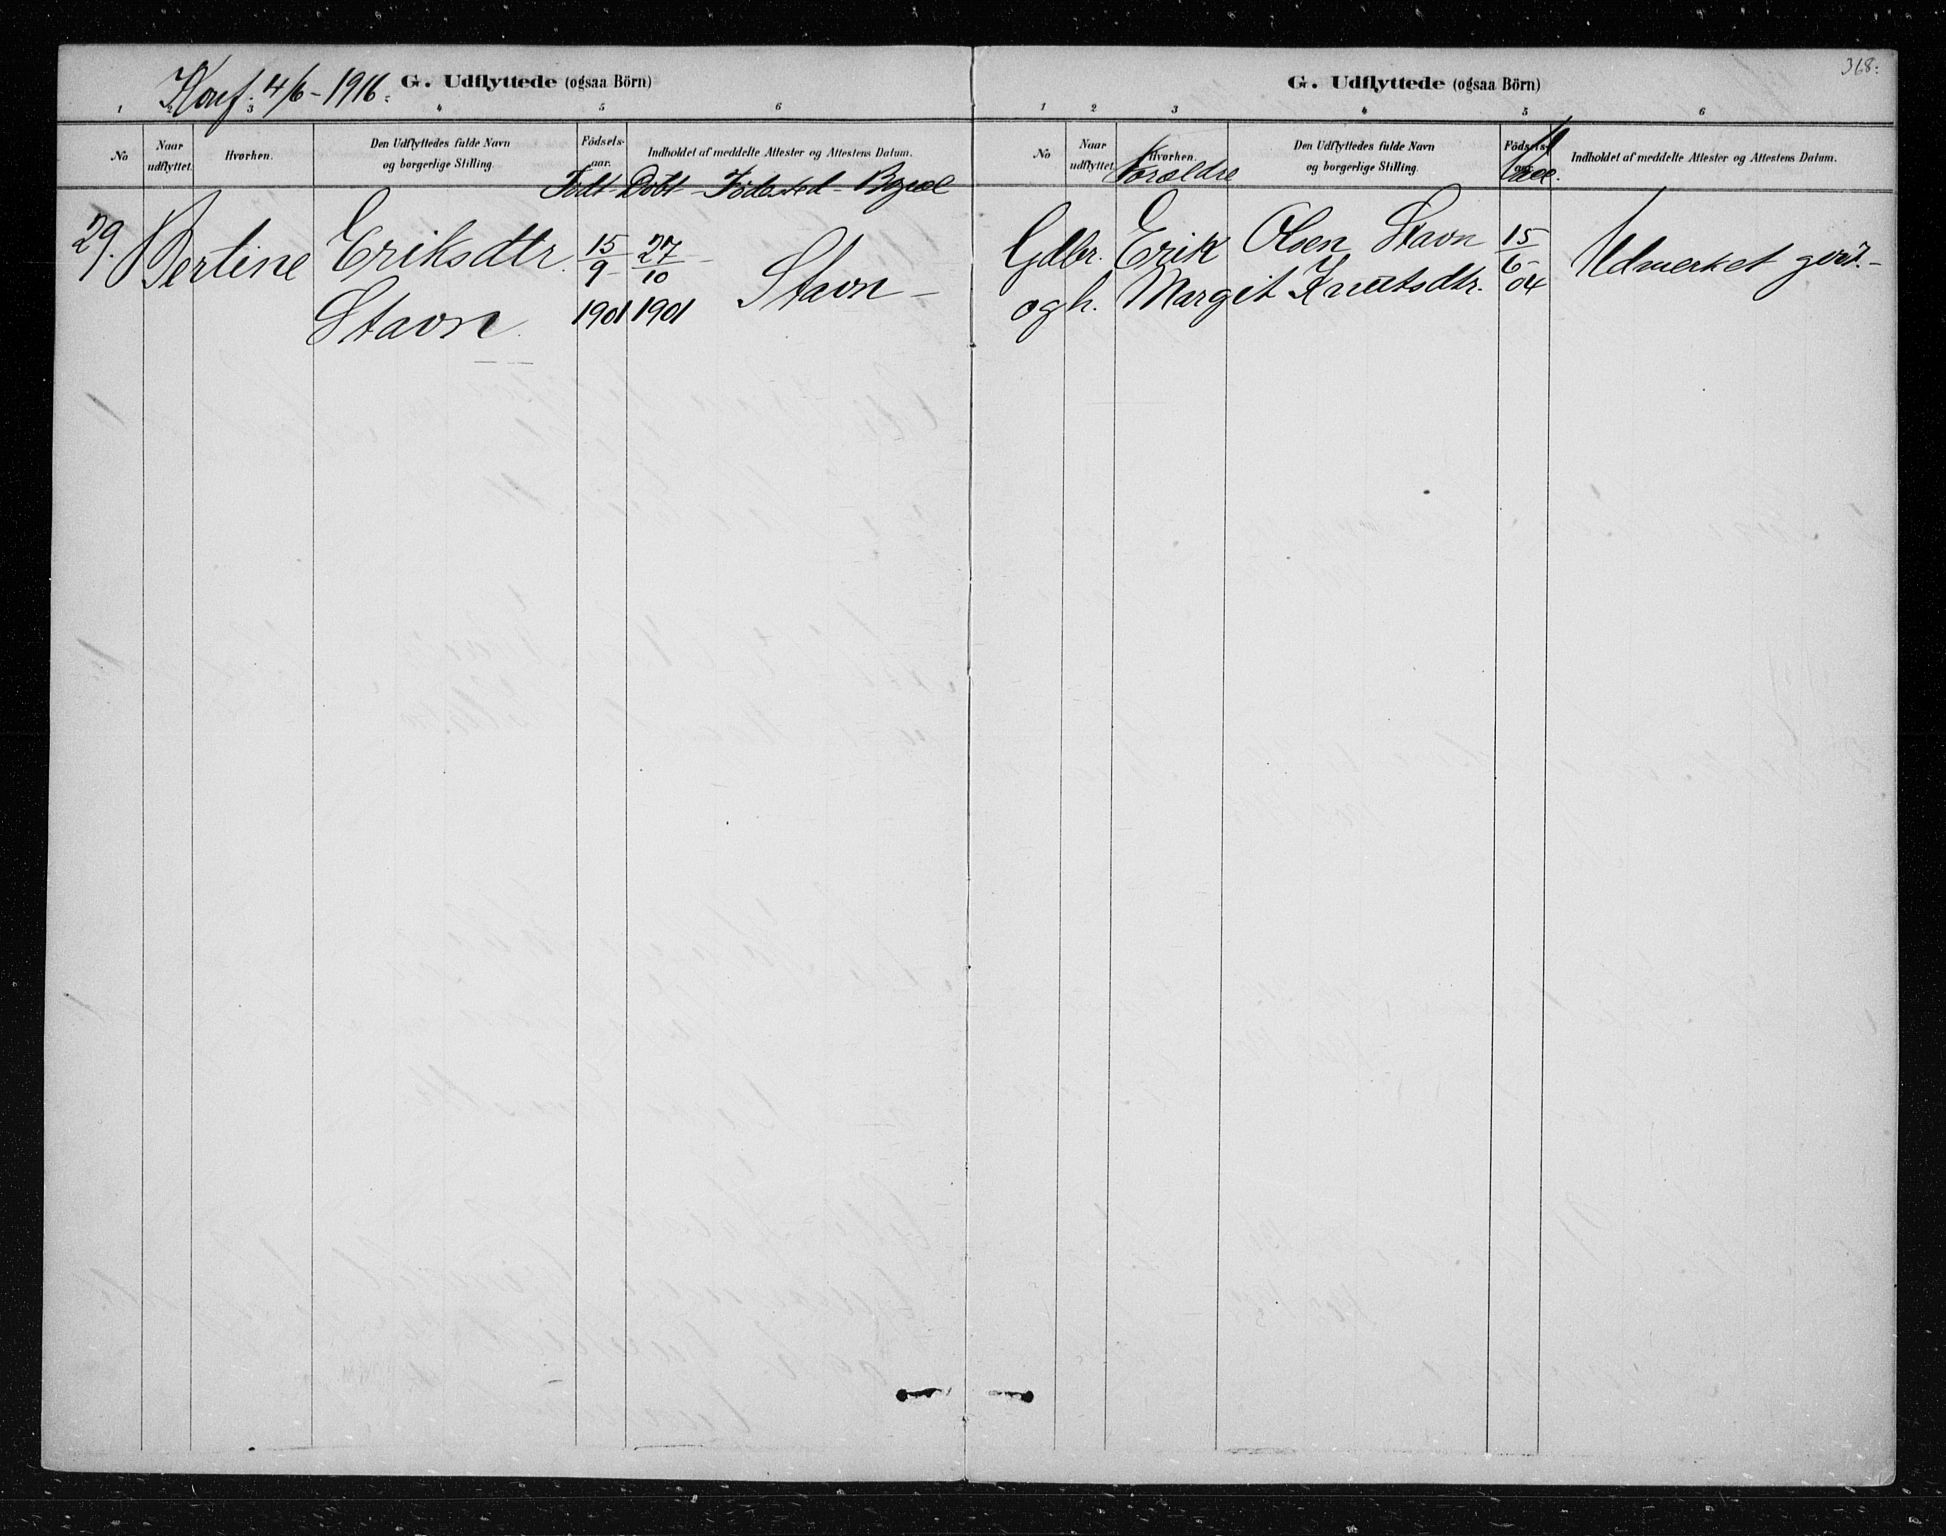 Konf. 4/6 - 1916.
G. Udflyttede (ogsaa Börn)
1 2 3 4 5 6
No
Naar udflyttet.
Hvorhen.
Den Udflyttedes fulde Navn og borgerlige Stilling.
Födsels-aar.
Indholdet af meddelte Attester og Attestens Datum.
Födt - Döbt - Födested - Bopæl
29. Bertine Eriksdtr. 15/9 27/10 Stavn -
Stavn 1901 1901
368.
G. Udflyttede (ogsaa Börn)
1 2 3 4 5 6
No
Naar udflyttet.
Hvorhen.
Den Udflyttedes fulde Navn og borgerlige Stilling.
Födsels-
Indholdet af meddelte Attester og Attestens Datum.
Forældre
Vacc.
Gdbr. Erik Olsen Stavn 15/6 - Udmerket
og h. Margit Knutsdtr. 04